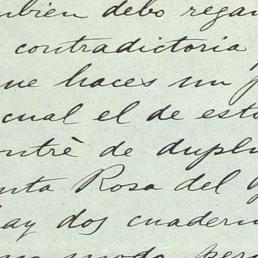 mbien debo regar
contradictoria
ue haces un f
cual el de esto
ontrè de dupli
nta Rosa del
hay dos cuadern
modo, pero